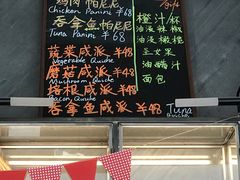 鸡肉帕尼尼
Chicken Panini ¥68
吞拿鱼帕尼尼
Tuna Panini ¥68
蔬菜咸派 ¥48
Vegetable Quiche
蘑菇咸派 ¥48
Mushroom Quiche
培根咸派 ¥48
Bacon Quiche
吞拿鱼咸派 ¥48
Tuna
Quiche
橙汁/杯
油浸辣椒
油浸橄榄
三文鱼
油醋汁
面包